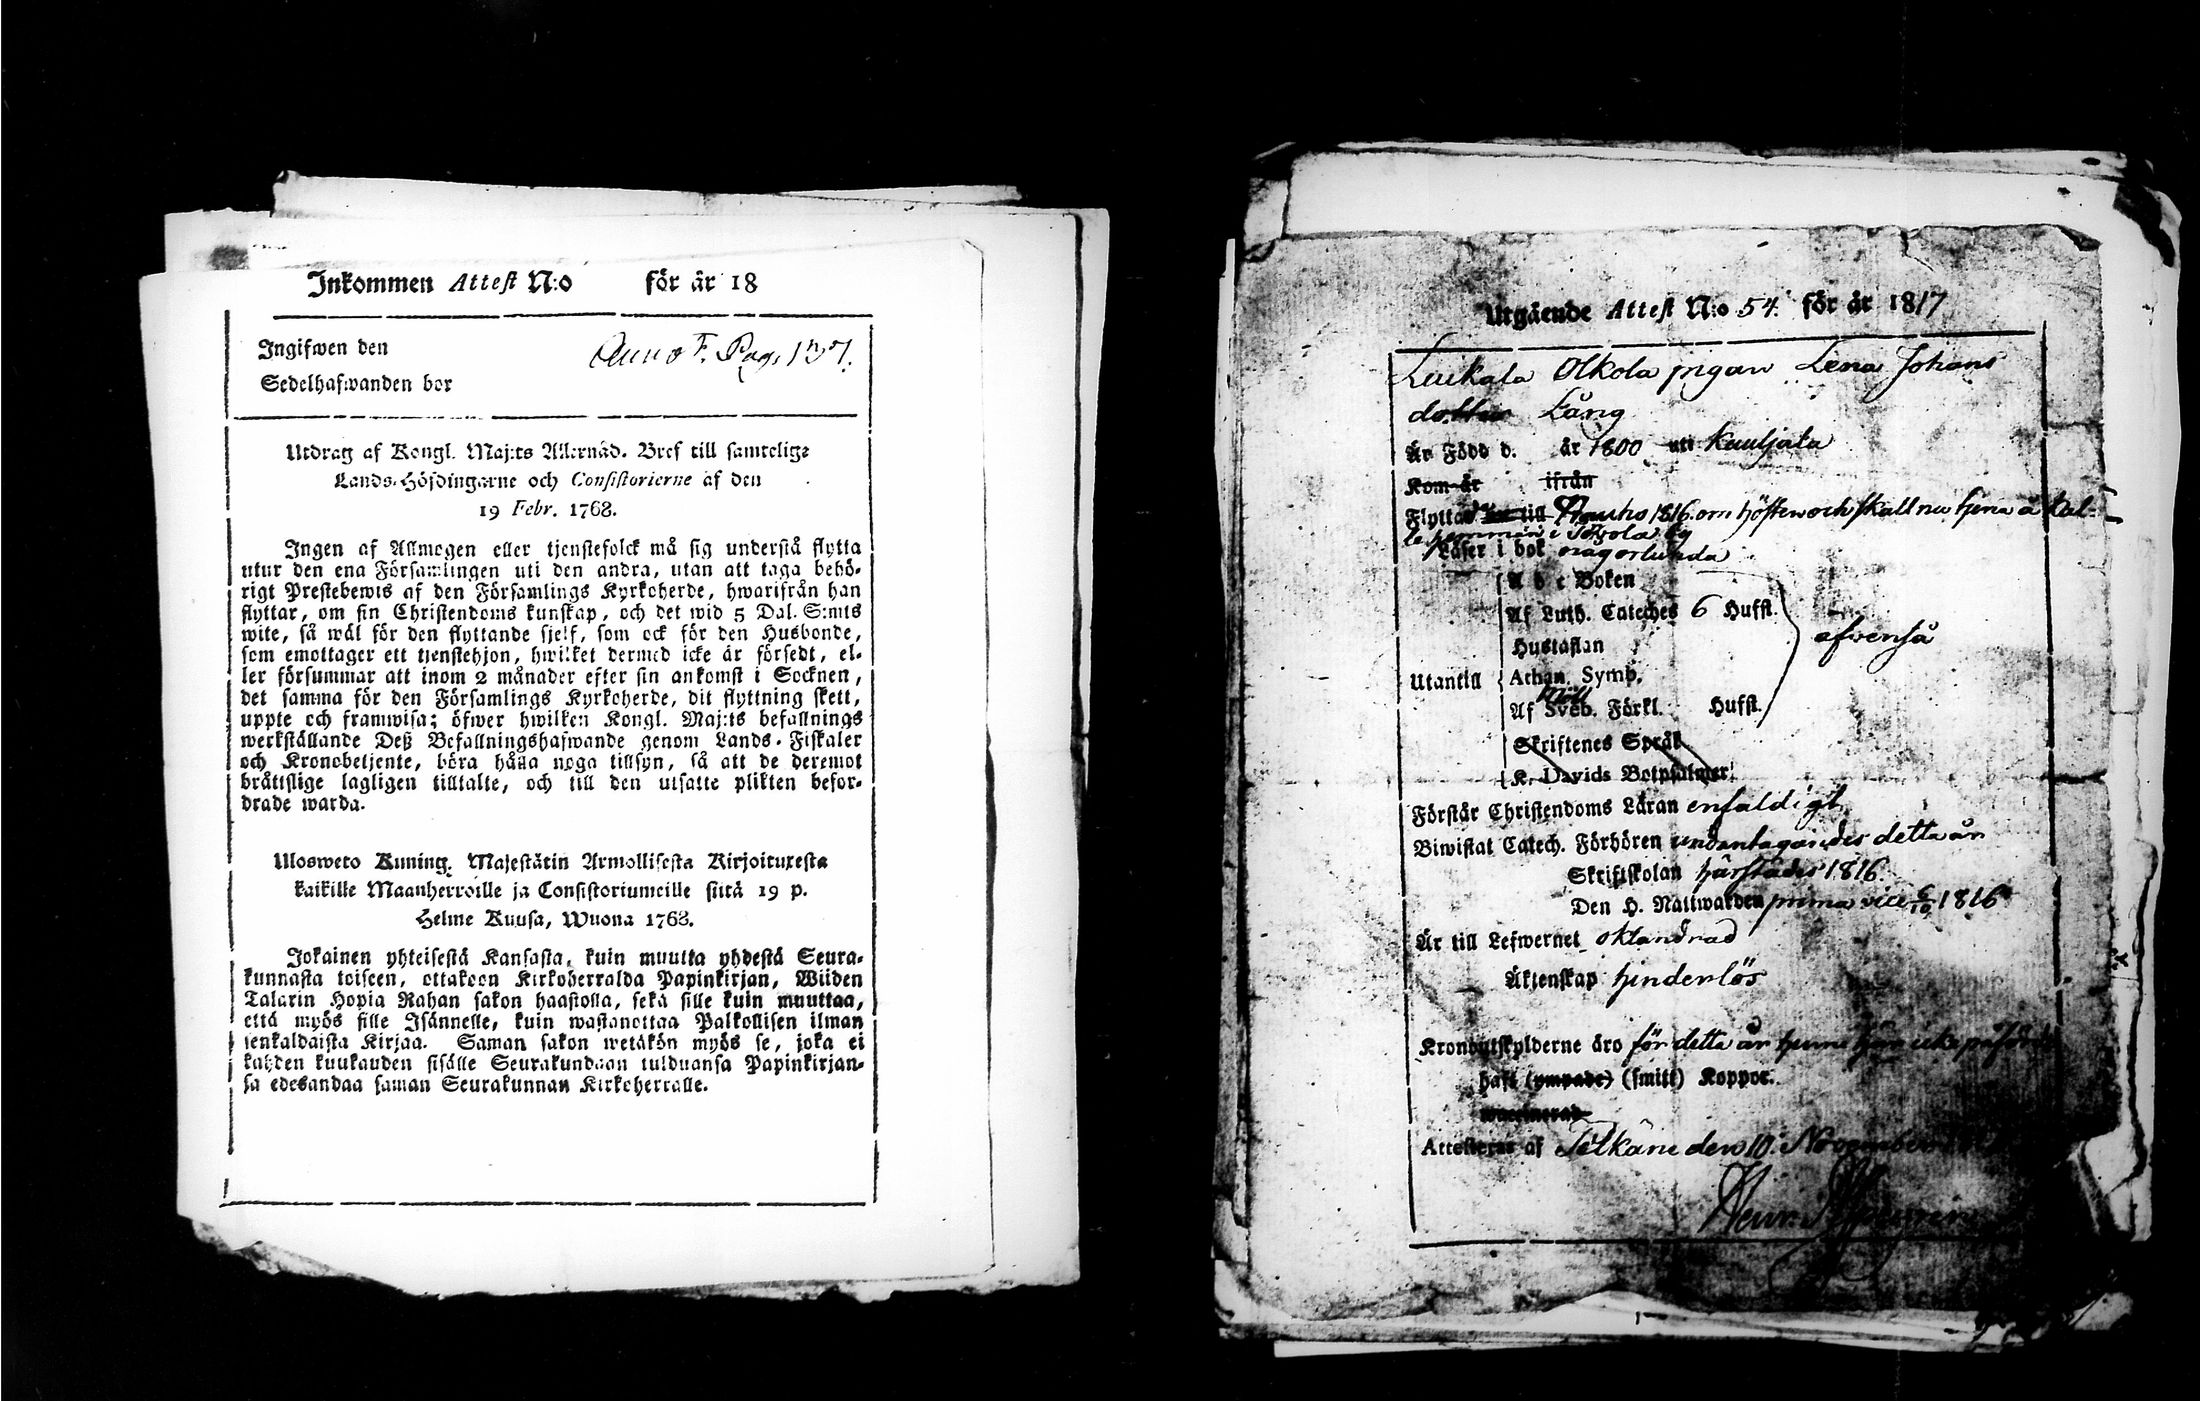 Inkommen Attest N:o för år 18
Ingifwen den
Anno F. Pag. 137.
Sedelhafwanden bor
Utdrag af Kongl. Maj:ts Allernåd. Bref till samtelige
Lands-Höfdingarne och Consistorierne af den
19 Febr. 1768.
Ingen af Allmogen eller tjenstefolck må sig understå flytta
utur den ena Församlingen uti den andra, utan att taga behö-
rigt Prestebewis af den Församlings Kyrkoherde, hwarifrån han
flyttar, om sin Christendoms kunskap, och det wid 5 Dal. S:mts
wite, så wäl för den flyttande sjelf, som ock för den Husbonde,
som emottager ett tjenstehjon, hwilket dermed icke är försedt, el-
ler försummar att inom 2 månader efter sin ankomst i Socknen,
det samma för den Församlings Kyrkoherde, dit flyttning skett,
uppte och framwisa; öfwer hwilken Kongl. Maj:ts befallnings
werkställande Deß Befallningshafwande genom Lands-Fiskaler
och Kronobetjente, böra hålla noga tillsyn, så att de deremot
bråttslige lagligen tilltalte, och till den utsatte plikten befor-
drade warda.
Ulosweto Kuning. Majestätin Armollisesta Kirjoituxesta
kaikille Maanherroille ja Consistoriumeille siitä 19 p.
Helme Kuusa, Wuona 1768.
Jokainen yhteisestä Kansasta, kuin muutta yhdestä Seura-
kunnasta toiseen, ottakoon Kirkoherralda Papinkirjan, Wiiden
Talarin Hopia Rahan sakon haastolla, sekä sille kuin muuttaa,
että myös sille Isännelle, kuin wastanottaa Palkollisen ilman
senkaldaista Kirjaa. Saman sakon wetäkön myös se, joka ei
kahden kuukauden sisälle Seurakundaan tulduansa Papinkirjan-
sa edesandaa saman Seurakunnan Kirkoherralle.
Utgående Attest N:o 54. för år 1817
Luikala Olkola pigan Lena Johans
dotter Lång
Är Född d. år 1800 uti Kautjala
Kom år ifrån
Flyttar till 1816 om hösten och skall nu tjena å Kal-
le hemman i by
Läser i bok någorlunda
A b c Boken
Af Luth. Cateches 6 Hufst.
Hustaflan
äfvenså
Utantill Athan. Symb.
Af Sveb. Förkl. Hufst.
Skriftenes Språk
K. Davids Botpsalmer
Förstår Christendoms Läran enfaldigt
Biwistat Catech. Förhören undantagandes detta år
Skriftskolan härstädes 1816.
Den H. Nattwarden prima vice 6/10 1816
Är till Lefwernet oklandrad
Äktenskap hinderlös
Kronoutskylderne äro för detta år henne här icke påförde
haft (ympade) (smitt) Koppor.
waccinerad
Attesteras af Selkäne den 10. November
Henr.